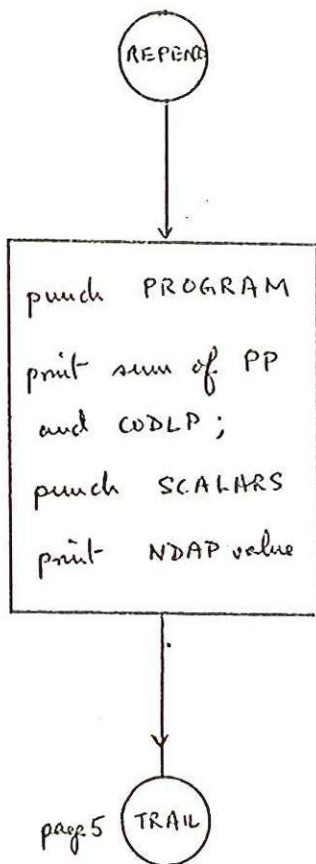 REPEND
punch PROGRAM
print sum of PP
and CODLP ;
punch SCALARS
print NDAP value
page 5 TRAIL